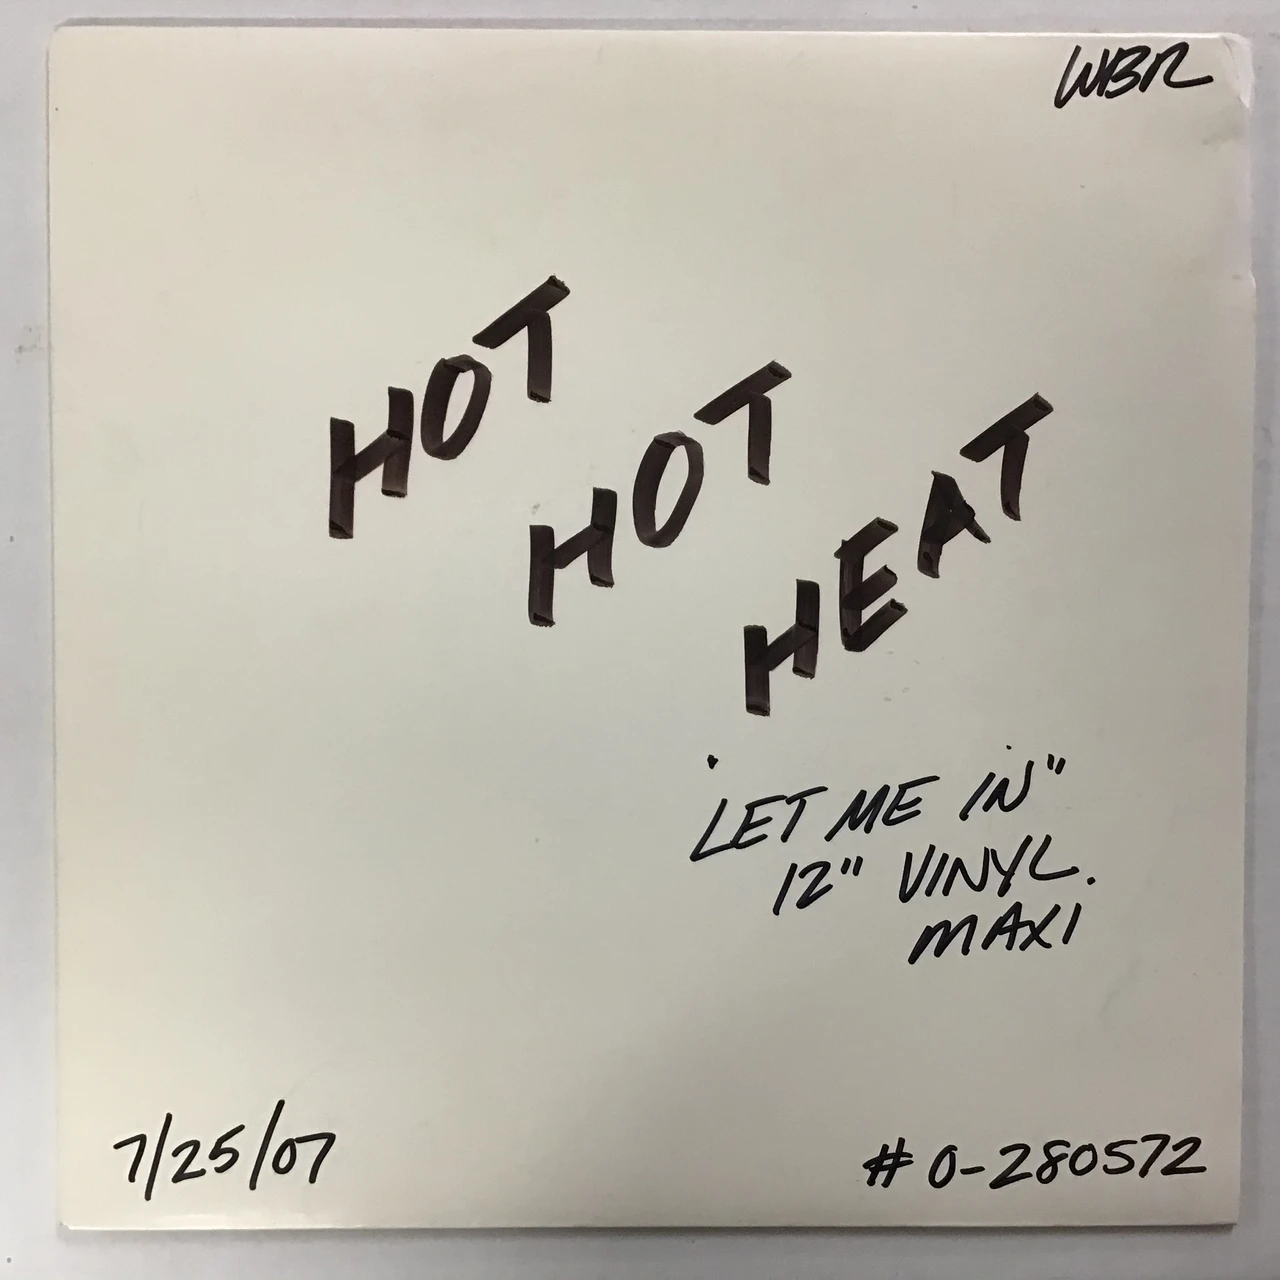 WBR
HOT
HOT
HEAT
"LET ME IN"
12" VINYL.
MAXI
7/25/07
# 0-280572